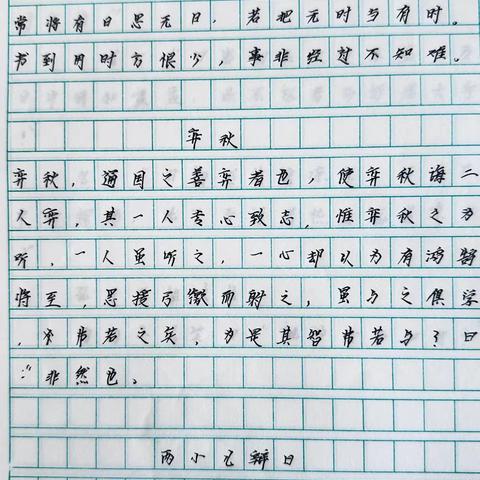 常将有日思无日，若把无时与有时。
书到用时方恨少，事非经过不知难。
弈秋
弈秋，通国之善弈者也，使弈秋诲二
人弈，其一人专心致志，惟弈秋之为
听，一人虽听之，一心却以为有鸿鹄
将至，思援弓缴而射之，虽与之俱学
，不弗若之矣，为是其智弗若与？曰
：非然也。
两小儿辩日